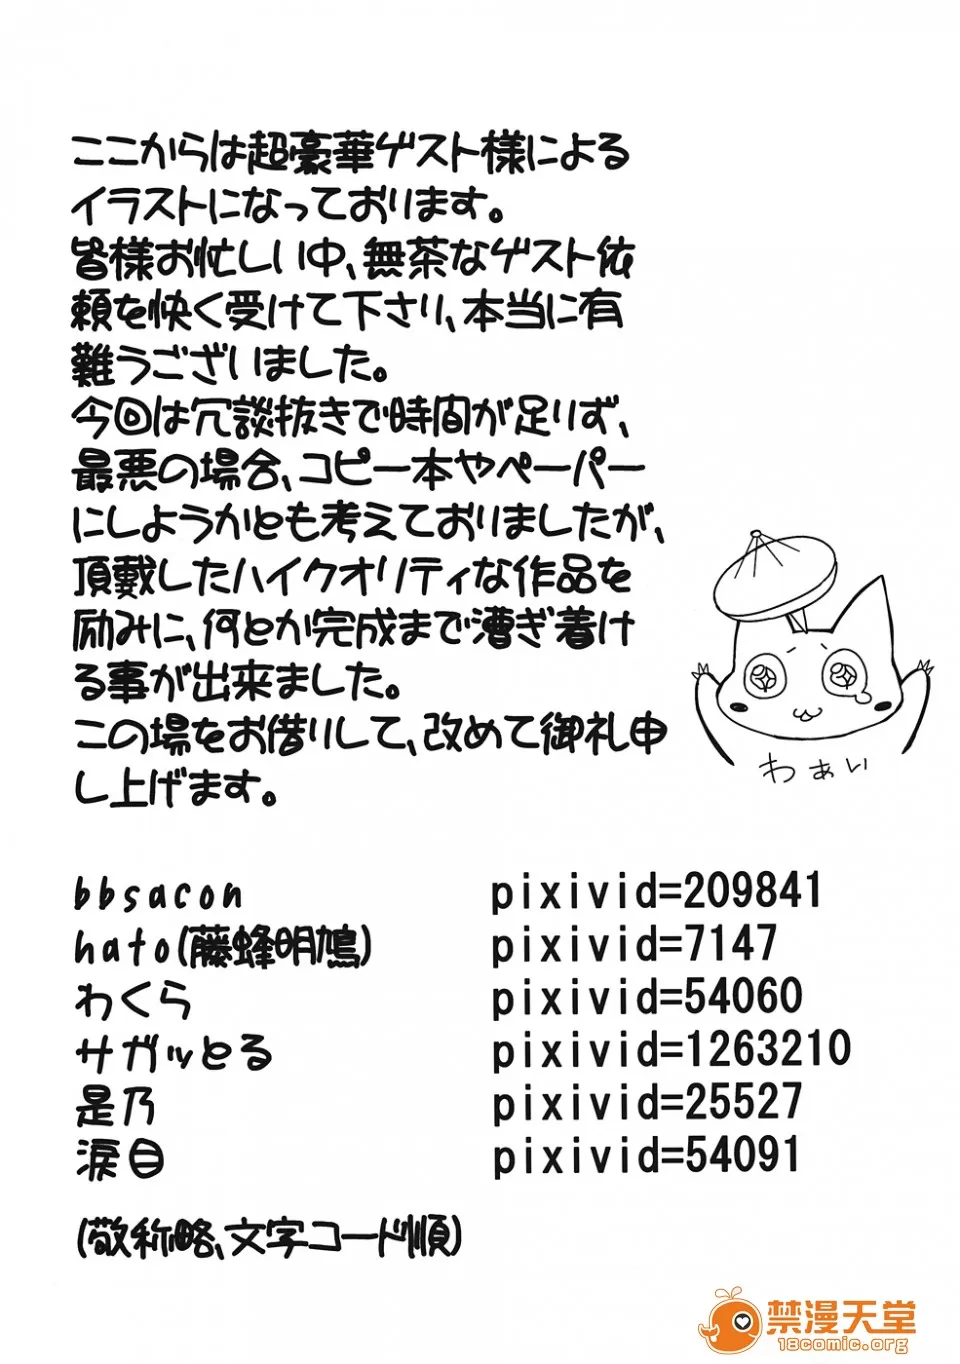 ここからは超豪華ゲスト様による
イラストになっております。
皆様お忙しい中、無茶なゲスト依
頼を快く受けて下さり、本当に有
難うございました。
今回は冗談抜きで時間が足りず、
最悪の場合、コピー本やペーパー
にしようかとも考えておりましたが、
頂戴したハイクオリティな作品を
励みに、何とか完成まで漕ぎ着け
る事が出来ました。
この場をお借りして、改めて御礼申
し上げます。
わぁい
bbsacon pixivid=209841
hato(藤蜂明鳩) pixivid=7147
わくら pixivid=54060
サガッとる pixivid=1263210
是乃 pixivid=25527
涙目 pixivid=54091
(敬称略、文字コード順)
禁漫天堂
18comic.org